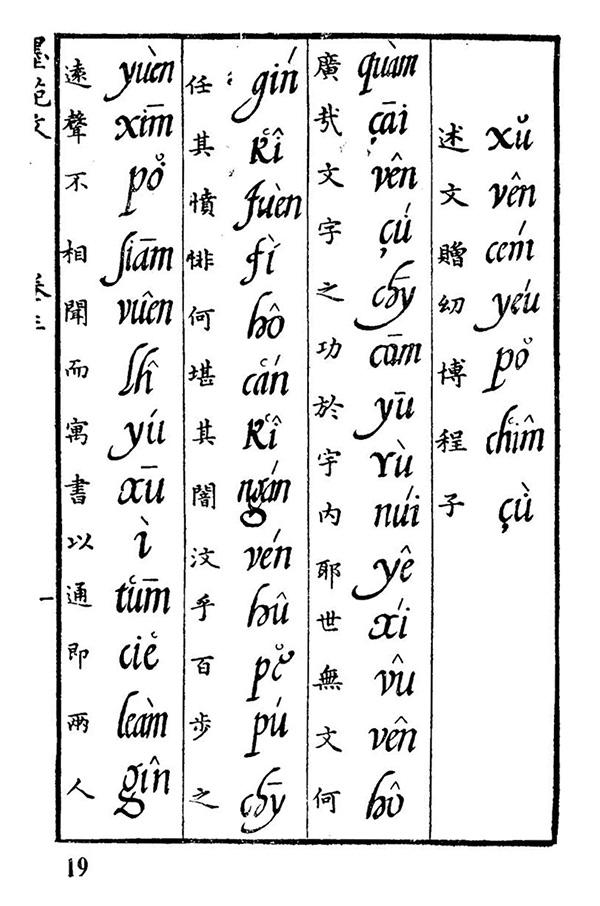 xŭ vên cém yéu pŏ̇ chʻîm çù
述文贈幼博程子
quàm çāi vên çú chȳ cūm yū yù núi yê xí vû vên hô
廣哉文字之功於宇內耶世無文何
gín kʻî fuèn fì hô cʻán kʻî ngán vén hû pĕ pú chȳ
任其憤悱何堪其闇汶乎百步之
yuèn xīm pŏ̇ siām vuên lĥ yú xū ì tʻūm ciĕ leàm gîn
遠聲不相聞而寓書以通即兩人
一
19